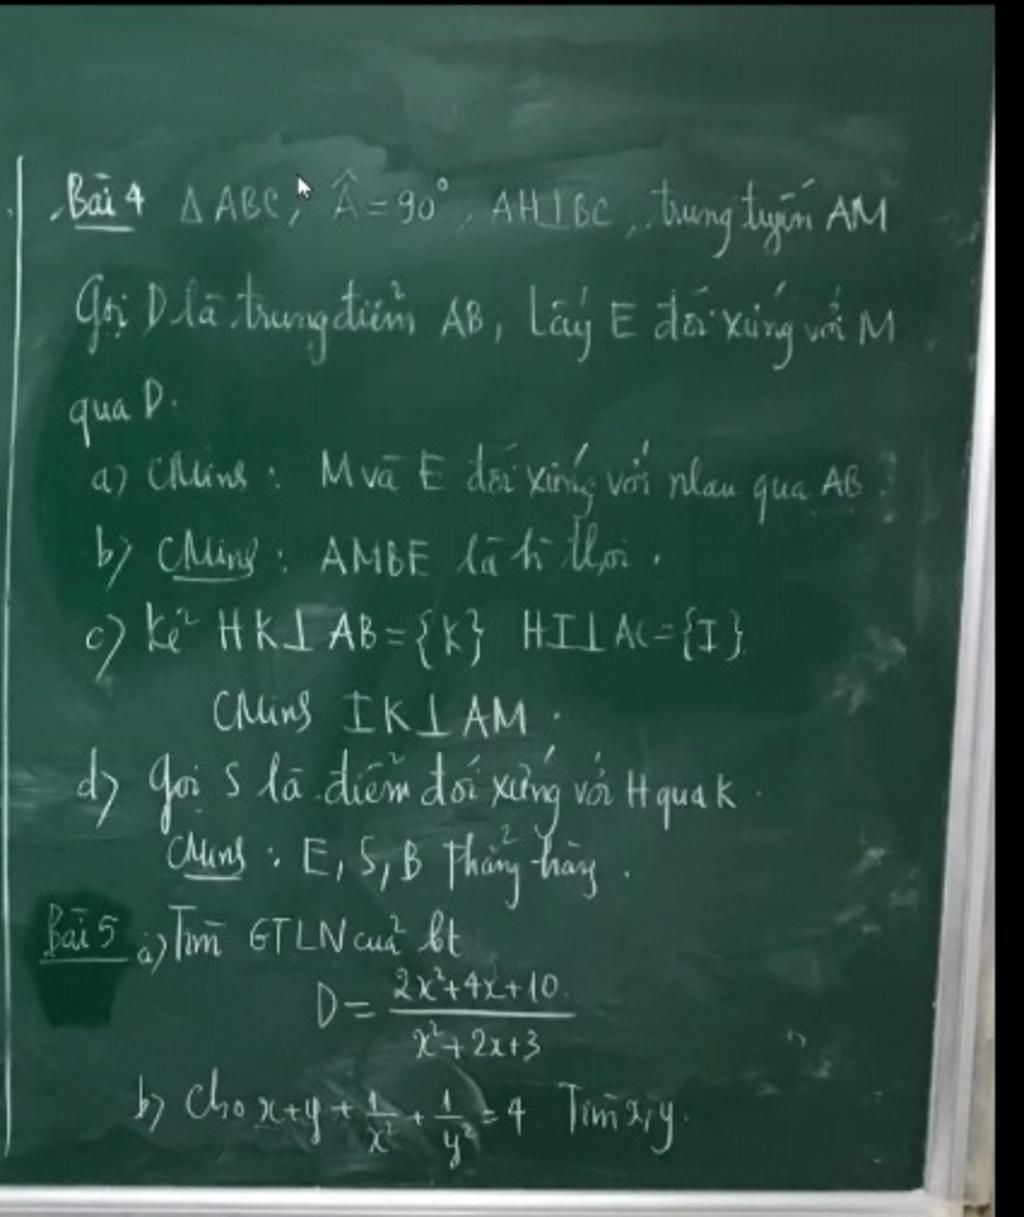 Bài 4 Δ ABC, Â = 90°, AH⊥BC, trung tuyến AM
Gọi D là trung điểm AB, Lấy E đối xứng với M
qua D.
a) CMinh : M và E đối xứng với nhau qua AB.
b) CMinh : AMBE là h thoi.
c) Kẻ HK⊥AB={K} HI⊥AC={I}
CMinh IK⊥AM.
d) Gọi S là điểm đối xứng với H qua K.
CMinh : E, S, B thẳng hàng.
Bài 5 a) Tìm GTLN của bt
D = \frac{2x²+4x+10}{x²+2x+3}
b) Cho x+y+\frac{1}{x²}+\frac{1}{y²}=4 Tìm x,y.